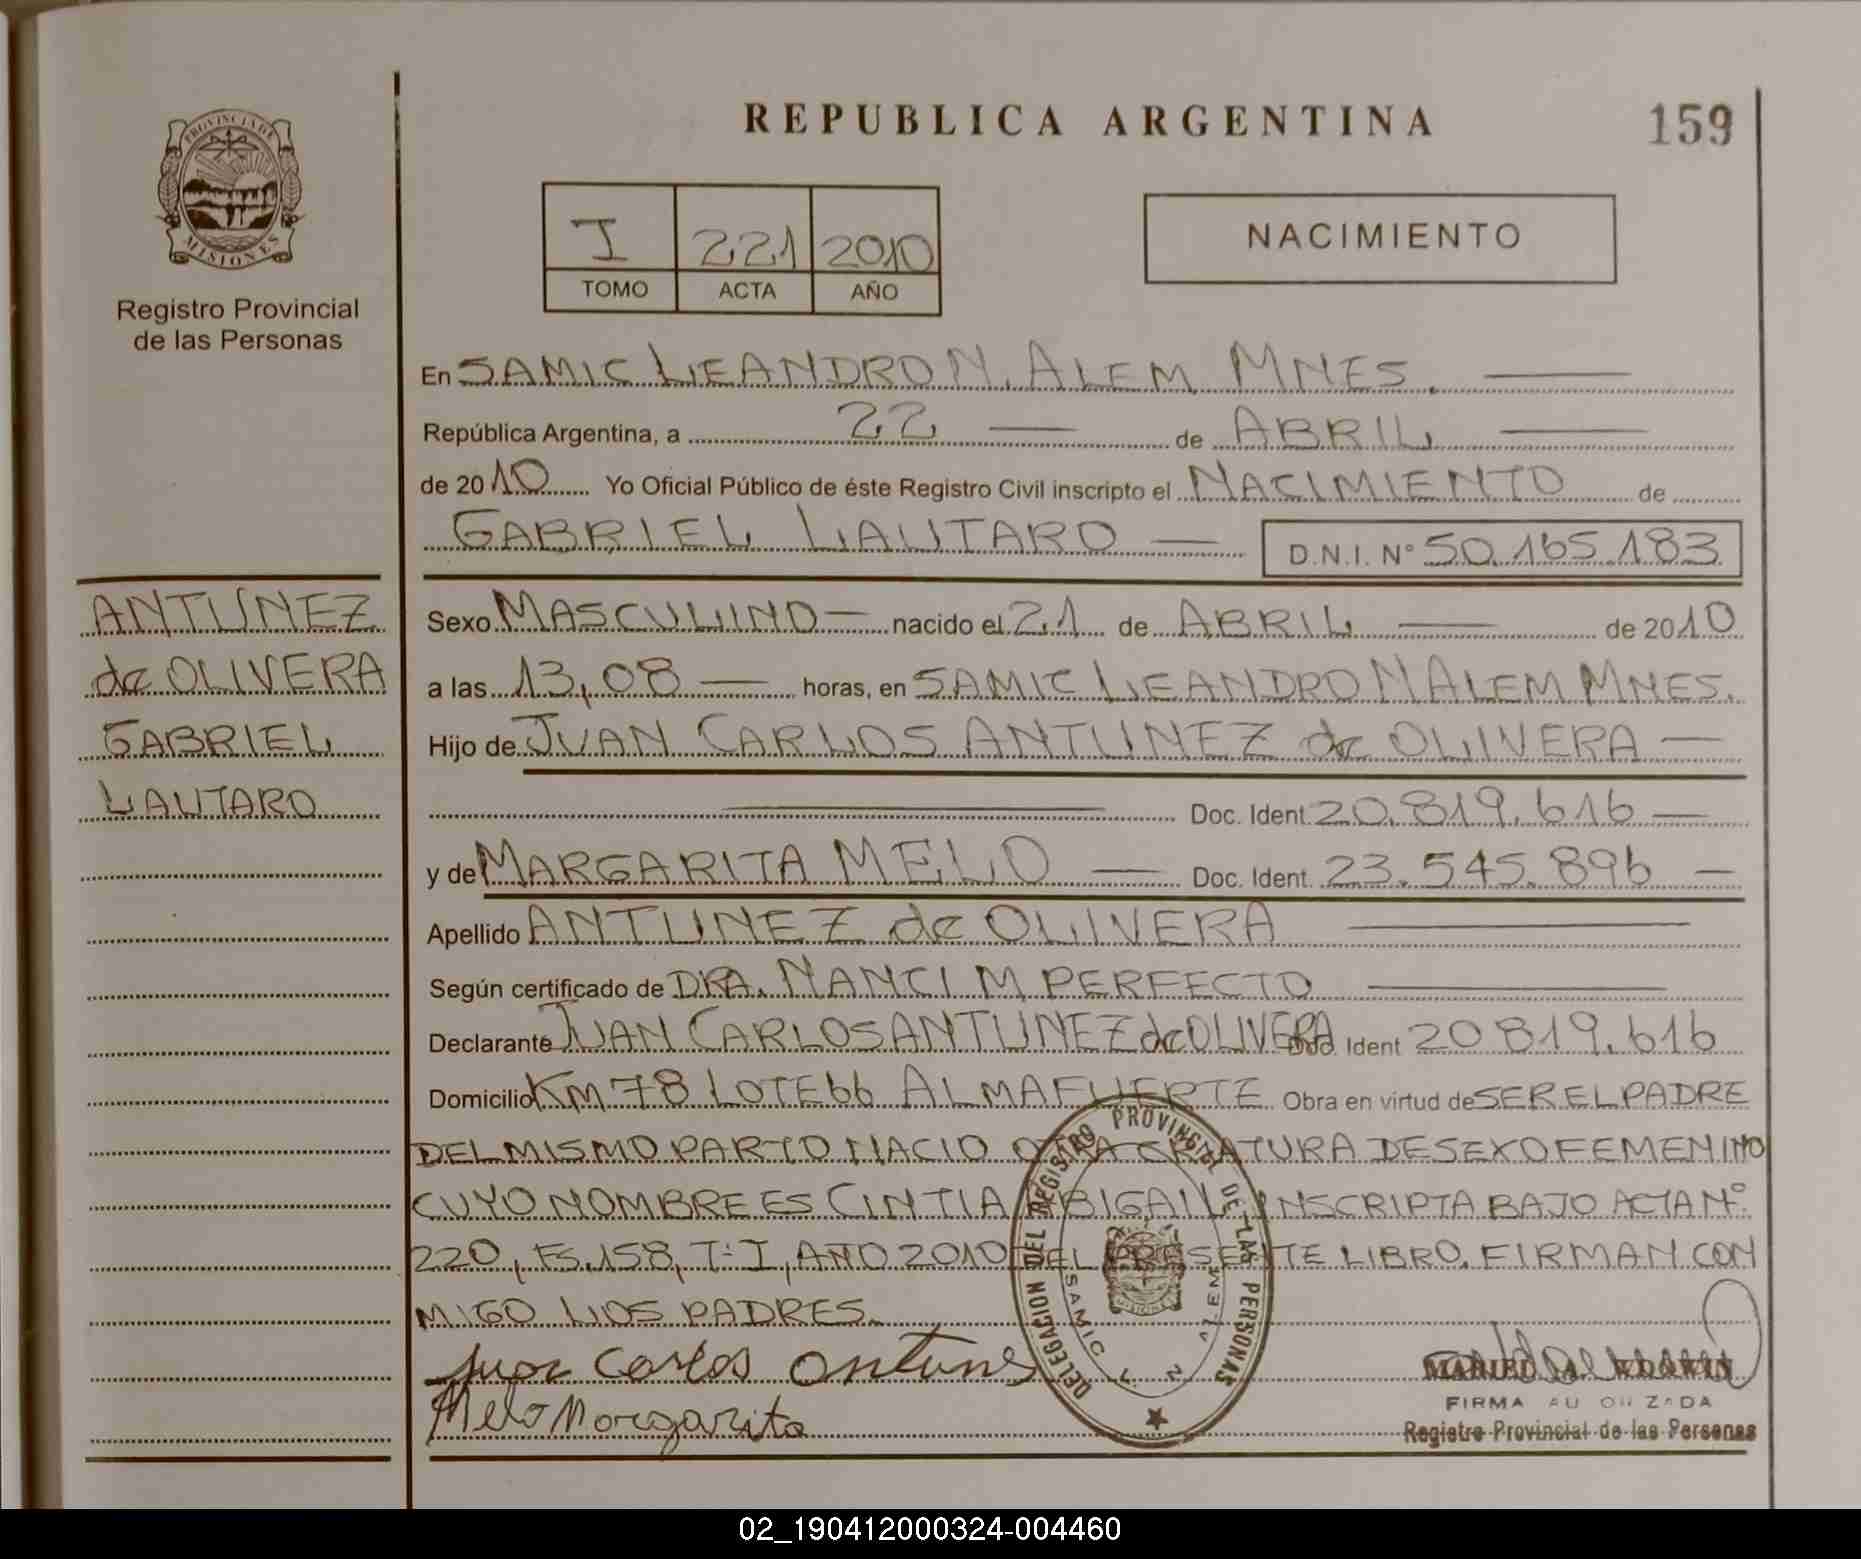 REPUBLICA ARGENTINA
159
PROVINCIA DE
MISIONES
Registro Provincial
de las Personas
I 221 2010
TOMO ACTA AÑO
NACIMIENTO
En SAMIC LEANDRO N. ALEM MNES.
República Argentina, a 22 de ABRIL
de 2010 Yo Oficial Público de éste Registro Civil inscripto el NACIMIENTO de
GABRIEL LAUTARO D.N.I. N° 50.165.183
ANTUNEZ
de OLIVERA
GABRIEL
LAUTARO
Sexo MASCULINO nacido el 21 de ABRIL de 2010
a las 13,08 horas, en SAMIC LEANDRO N ALEM MNES.
Hijo de JUAN CARLOS ANTUNEZ de OLIVERA
Doc. Ident. 20.819.616
y de MARGARITA MELO Doc. Ident. 23.545.896
Apellido ANTUNEZ de OLIVERA
Según certificado de DRA. NANCI M PERFECTO
Declarante JUAN CARLOS ANTUNEZ de OLIVERA Doc. Ident 20819.616
Domicilio KM 78 LOTE 66 ALMAFUERTE Obra en virtud de SER EL PADRE
DEL MISMO PARTO NACIO OTRA CRIATURA DE SEXO FEMENINO
CUYO NOMBRE ES CINTIA ABIGAIL INSCRIPTA BAJO ACTA N°
220, FS.158, T: I, AÑO 2010 DEL PRESENTE LIBRO. FIRMAN CON
MIGO LOS PADRES.
Juan Carlos Antunes
Melo Margarita
DELEGACION DEL REGISTRO PROVINCIAL DE LAS PERSONAS
SAMIC L. N. ALEM
MISIONES
FIRMA AUTORIZADA
Registro Provincial de las Personas
02_190412000324-004460